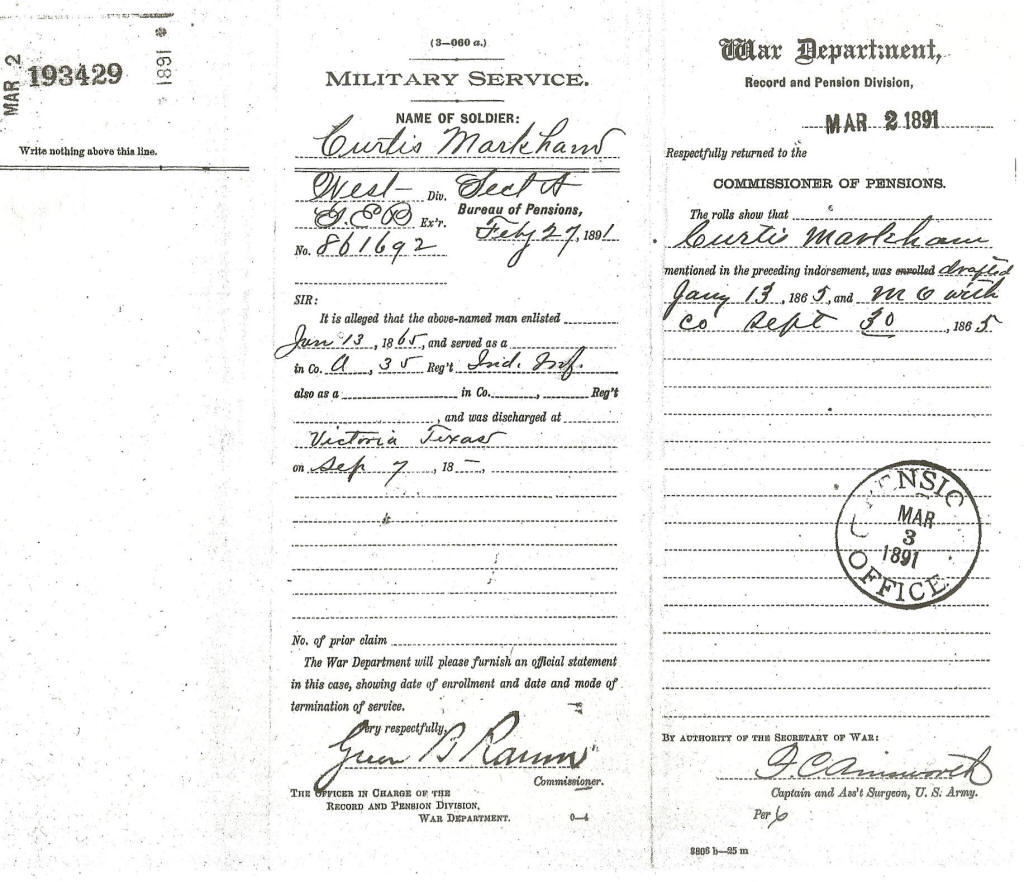 MAR 2
193429
1891
Write nothing above this line.
(3—060 a.)
MILITARY SERVICE.
NAME OF SOLDIER:
Curtis Markham
West Div. Sect A
G.E.R. Ex'r. Bureau of Pensions,
No. 861692 Feby 27, 1891
SIR:
It is alleged that the above-named man enlisted
Jan 13, 1865, and served as a
in Co. A, 35 Reg't Ind. Inf.
also as a in Co. , Reg't
, and was discharged at
Victoria Texas
on Sep 7, 18 —,
No. of prior claim
The War Department will please furnish an official statement
in this case, showing date of enrollment and date and mode of
termination of service.
Very respectfully,
Green B Raum
Commissioner.
THE OFFICER IN CHARGE OF THE
RECORD AND PENSION DIVISION,
WAR DEPARTMENT. 0—4
War Department,
Record and Pension Division,
MAR 2 1891
Respectfully returned to the
COMMISSIONER OF PENSIONS.
The rolls show that
Curtis Markham
mentioned in the preceding indorsement, was enrolled drafted
Jany 13, 1865, and M O with
Co Sept 30, 1865
PENSIO
MAR
3
1891
OFFICE
BY AUTHORITY OF THE SECRETARY OF WAR:
F. C. Ainsworth
Captain and Ass't Surgeon, U. S. Army.
Per
8806 b—25 m